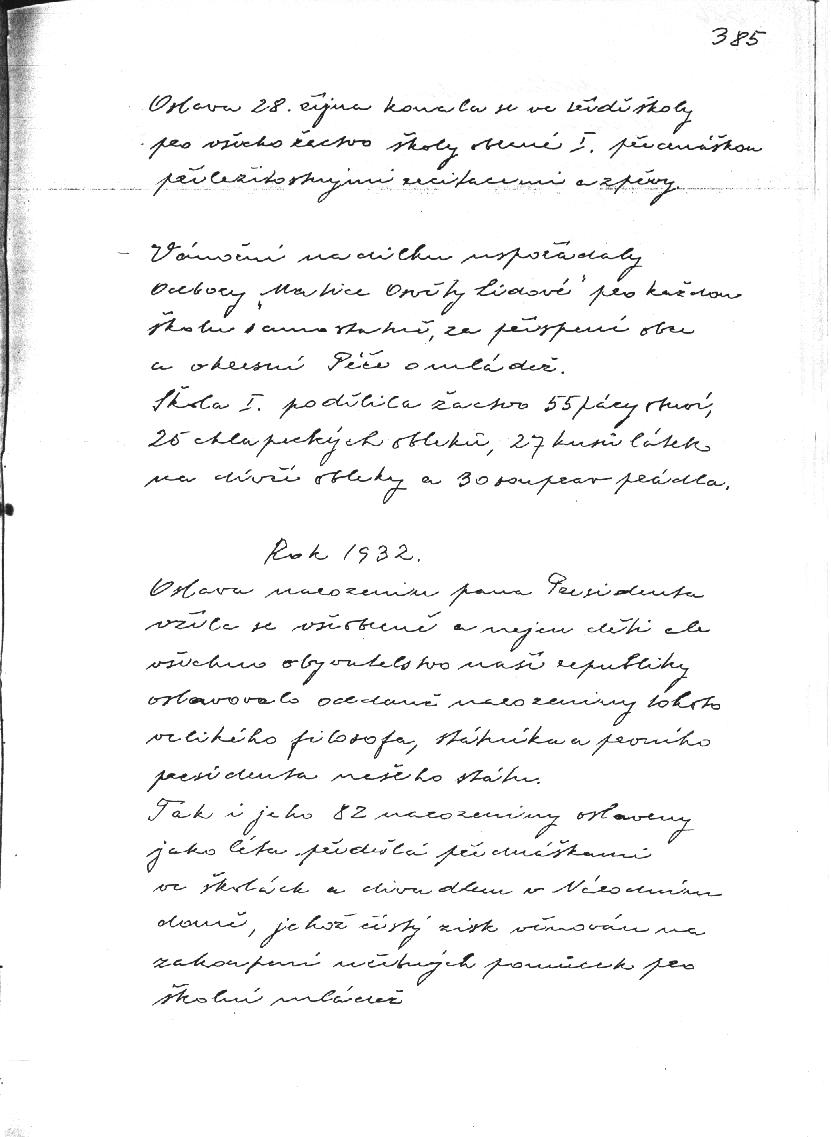 385
Oslava 28. října konala se ve třídě školy
pro všecho žactvo školy obecné I. přednáškou
příležitostnými recitacemi a zpěvy.
– Vánoční nadílku uspořádaly
Odbory „Matice Osvěty Lidové" pro každou
školu samostatně, za přispění obce
a okresní Péče o mládež.
Škola I. podělila žactvo 55 páry obuvi,
25 chlapeckých obleků, 27 kusů látek
na dívčí obleky a 30 souprav prádla.
Rok 1932.
Oslava narozenin pana Presidenta
vžila se všeobecně a nejen děti ale
všechno obyvatelstvo naší republiky
oslavovalo oddaně narozeniny tohoto
velikého filosofa, státníka a prvního
presidenta našeho státu.
Tak i jeho 82 narozeniny oslaveny
jako léta předešlá přednáškami
ve školách a divadlem v Národním
domě, jehož čistý zisk věnován na
zakoupení učebných pomůcek pro
školní mládež